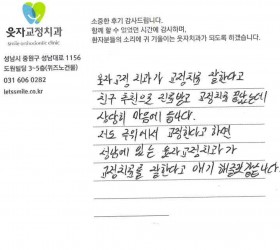 웃자교정치과
smile orthodontic clinic
성남시 중원구 성남대로 1156
도원빌딩 3-5층(위즈노건물)
031 606 0282
letssmile.co.kr
소중한 후기 감사드립니다.
함께 할 수 있었던 시간에 감사하며,
환자분들의 소리에 귀 기울이는 웃자치과가 되도록 하겠습니다.
웃자교정 치과가 교정치료 잘한다고
친구 추천으로 진료받고 교정치료 끝났는데
상당히 마음에 듭니다.
저도 주위에서 교정한다고 하면
성남에 있는 웃자교정치과가
교정치료를 잘한다고 얘기 해줄것같습니다